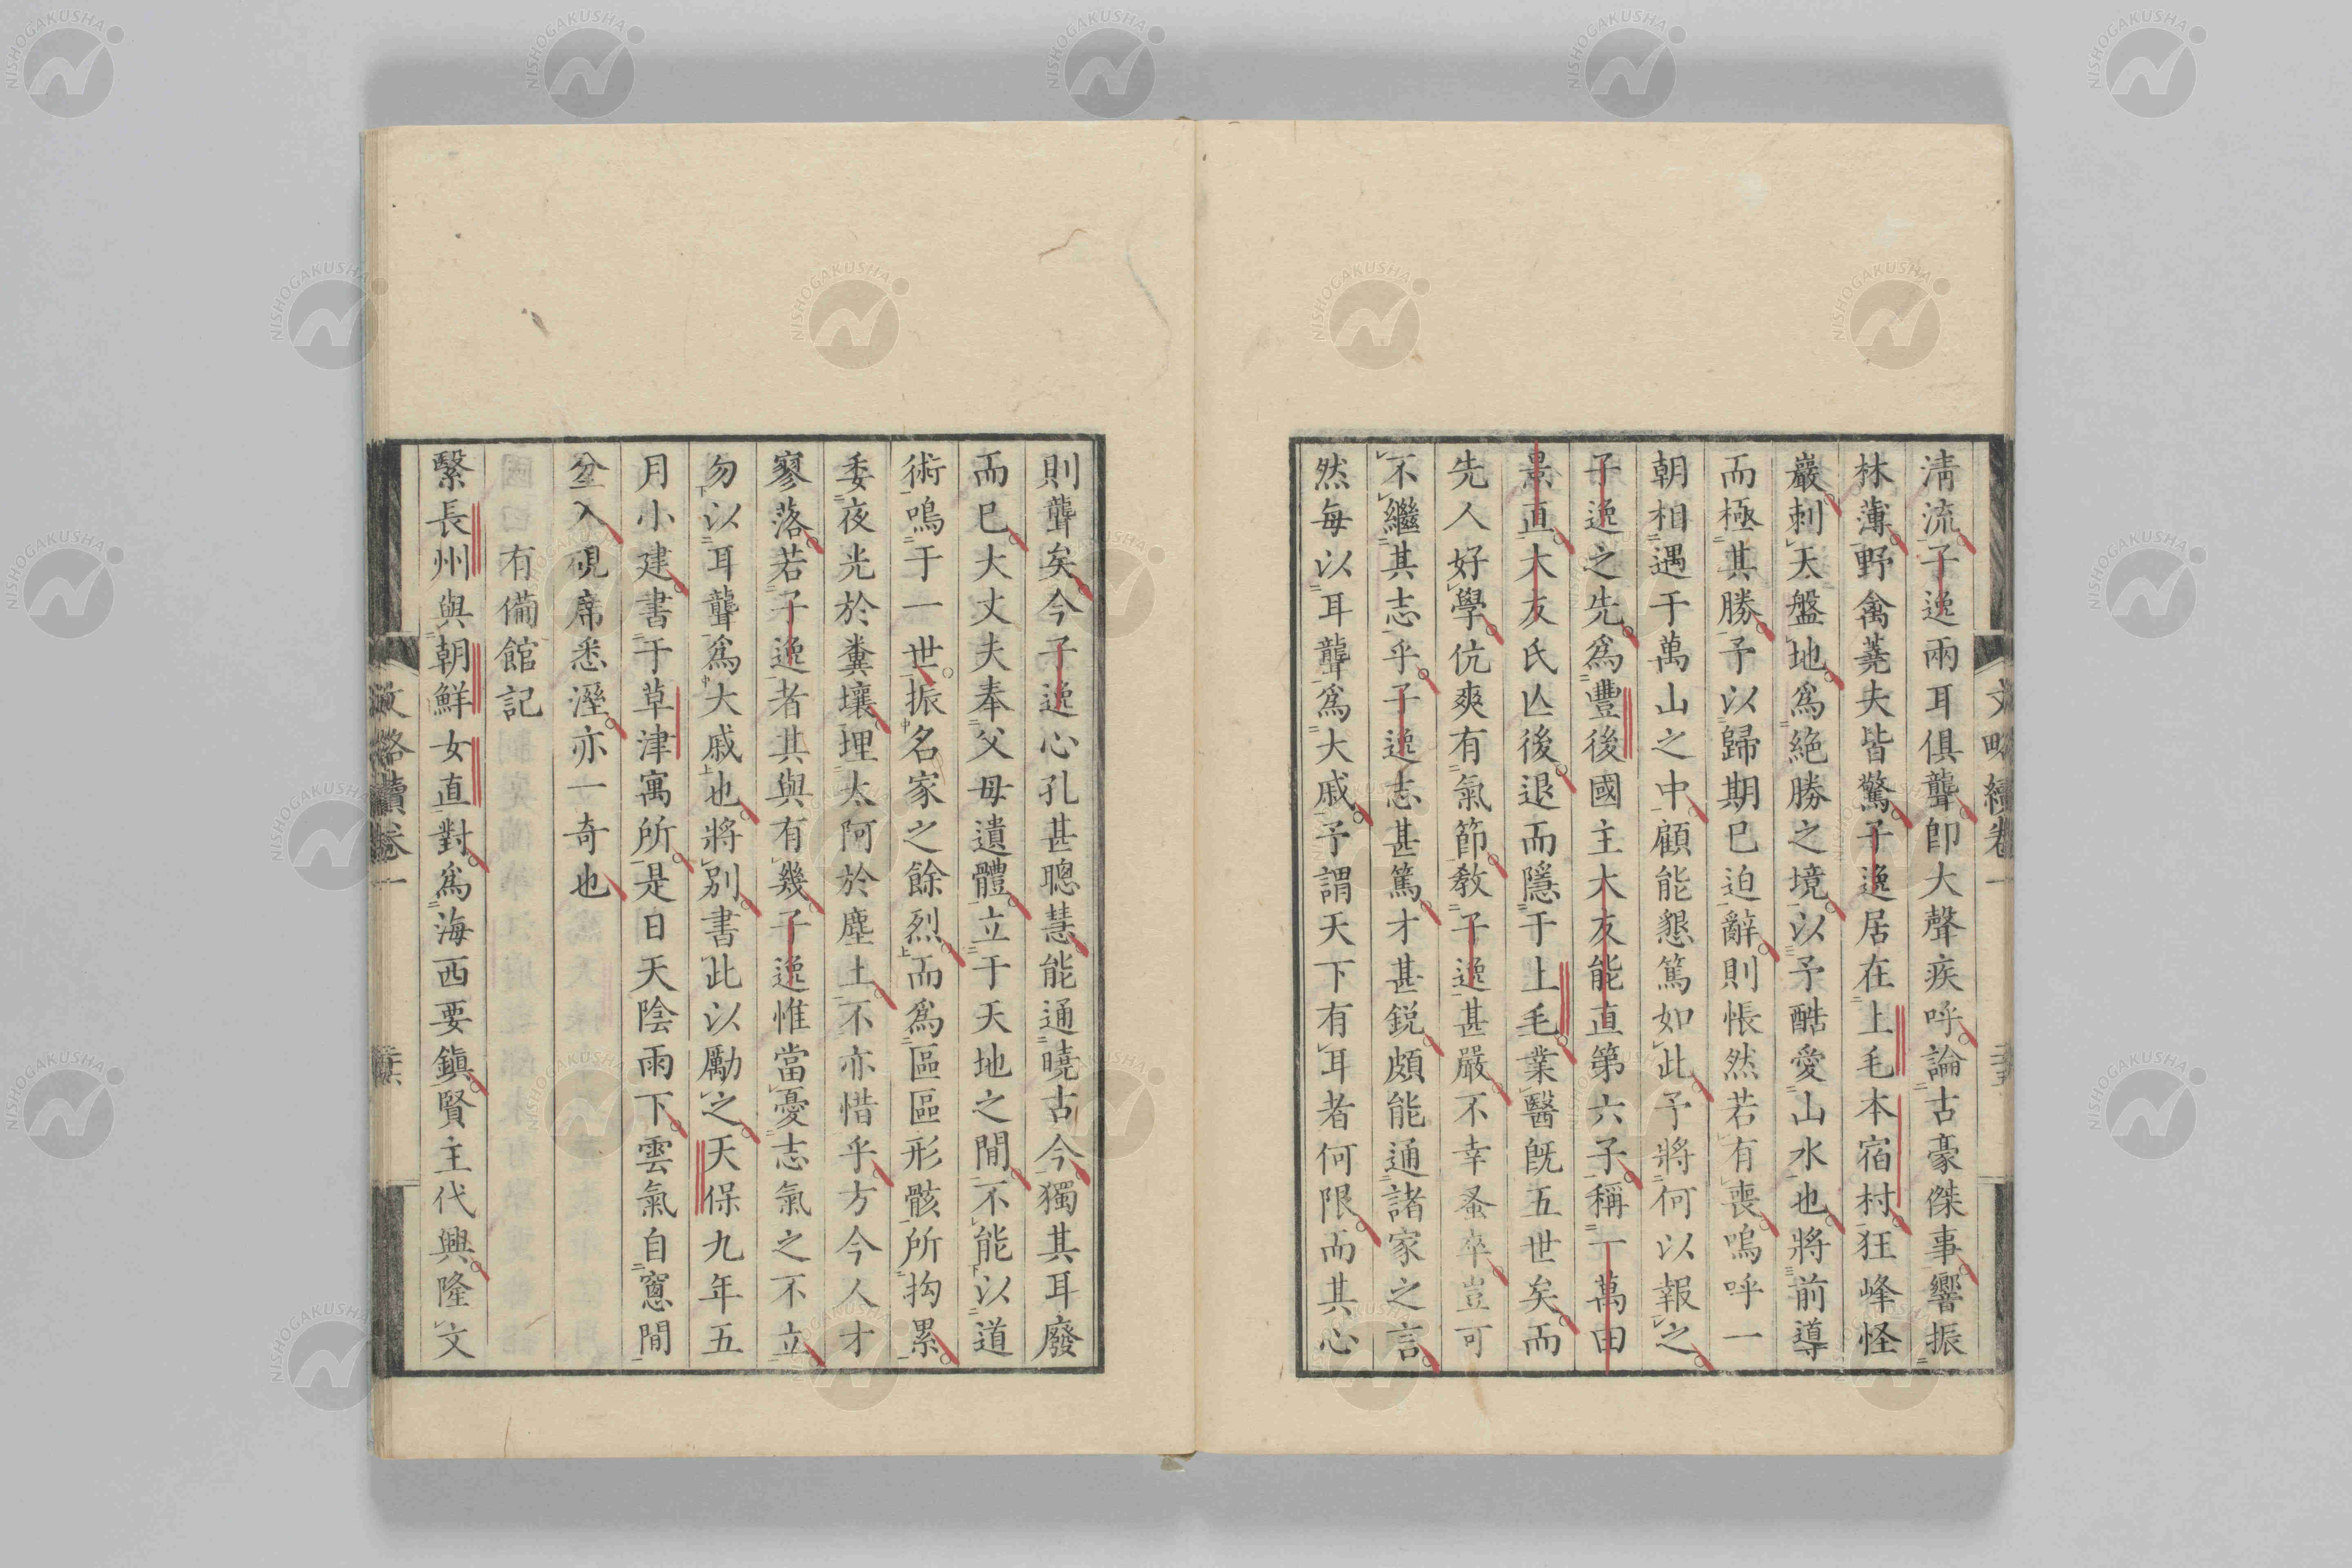 清流子逸兩耳俱聾卽大聲疾呼論古豪傑事響振
林薄野禽蕘夫皆驚子逸居在上毛本宿村狂峰怪
巖刺天盤地爲絕勝之境以予酷愛山水也將前導
而極其勝予以歸期已迫辭則悵然若有喪嗚呼一
朝相遇于萬山之中顧能懇篤如此予將何以報之
子逸之先爲豐後國主大友能直第六子稱一萬田
景直大友氏亾後退而隱于上毛業醫旣五世矣而
先人好學伉爽有氣節敎子逸甚嚴不幸蚤卒豈可
不繼其志乎子逸志甚篤才甚銳頗能通諸家之言
然每以耳聾爲大戚予謂天下有耳者何限而其心
文略續卷一
則聾矣今子逸心孔甚聰慧能通曉古今獨其耳廢
而已大丈夫奉父母遺體立于天地之間不能以道
術鳴于一世振名家之餘烈而爲區區形骸所拘累
委夜光於糞壤埋太阿於塵土不亦惜乎方今人才
寥落若子逸者其與有幾子逸惟當憂志氣之不立
勿以耳聾爲大戚也將別書此以勵之天保九年五
月小建書于草津寓所是日天陰雨下雲氣自窻間
坌入硯席悉溼亦一奇也
有備館記
繄長州與朝鮮女直對爲海西要鎭賢主代興隆文
文略續卷一
NISHOGAKUSHA